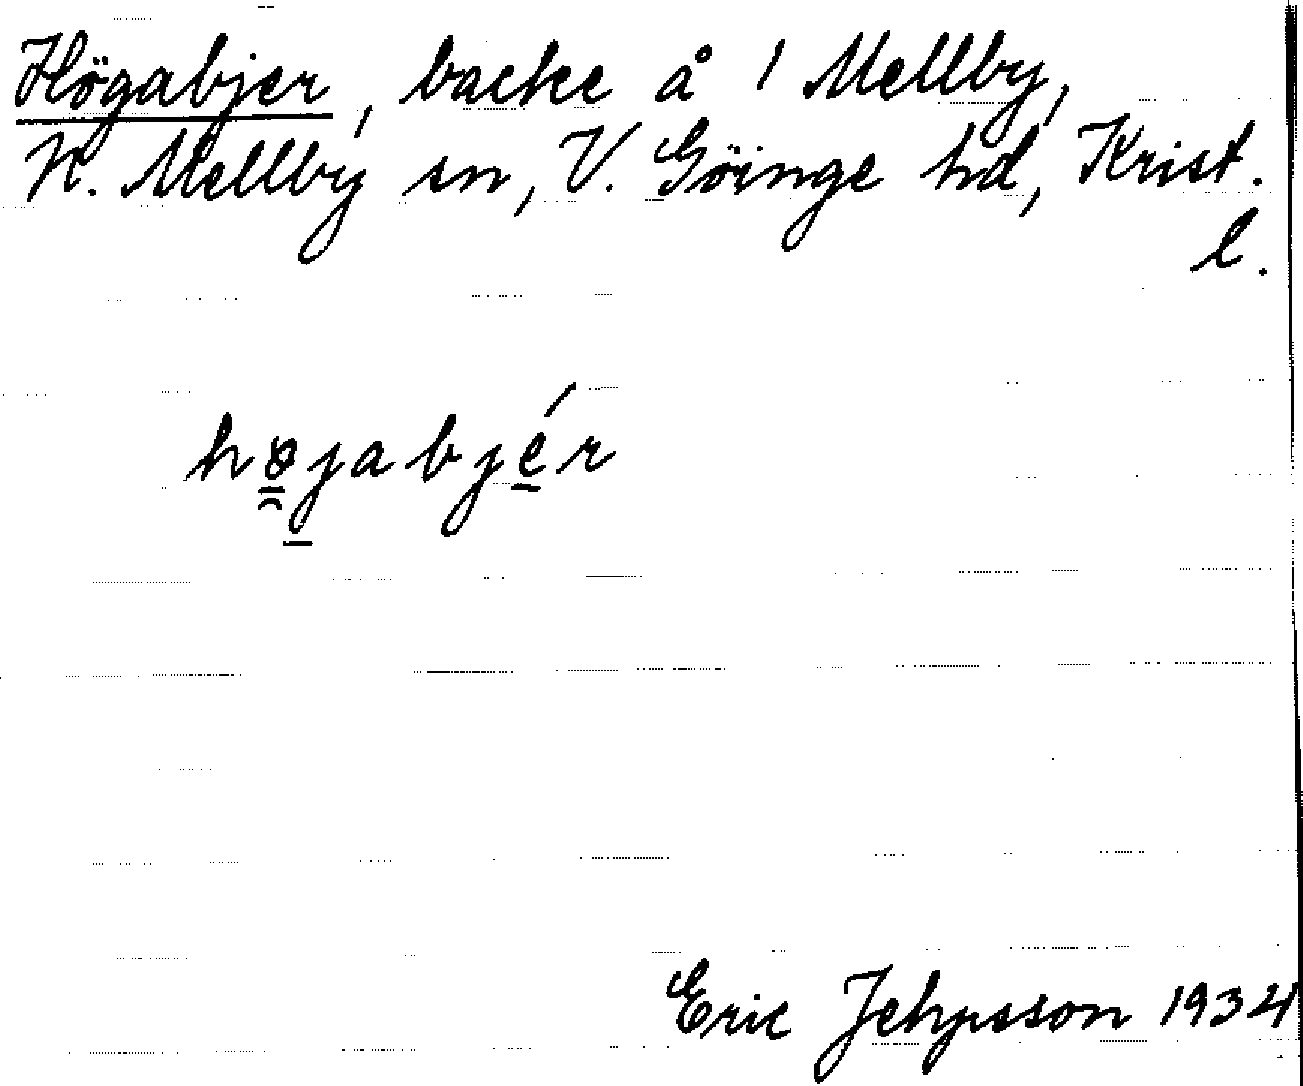 Högabjer, backe å 1 Mellby,
N. Mellby sn, V. Göinge hd, Krist.
l.
højabjér
Eric Jehpsson 1934